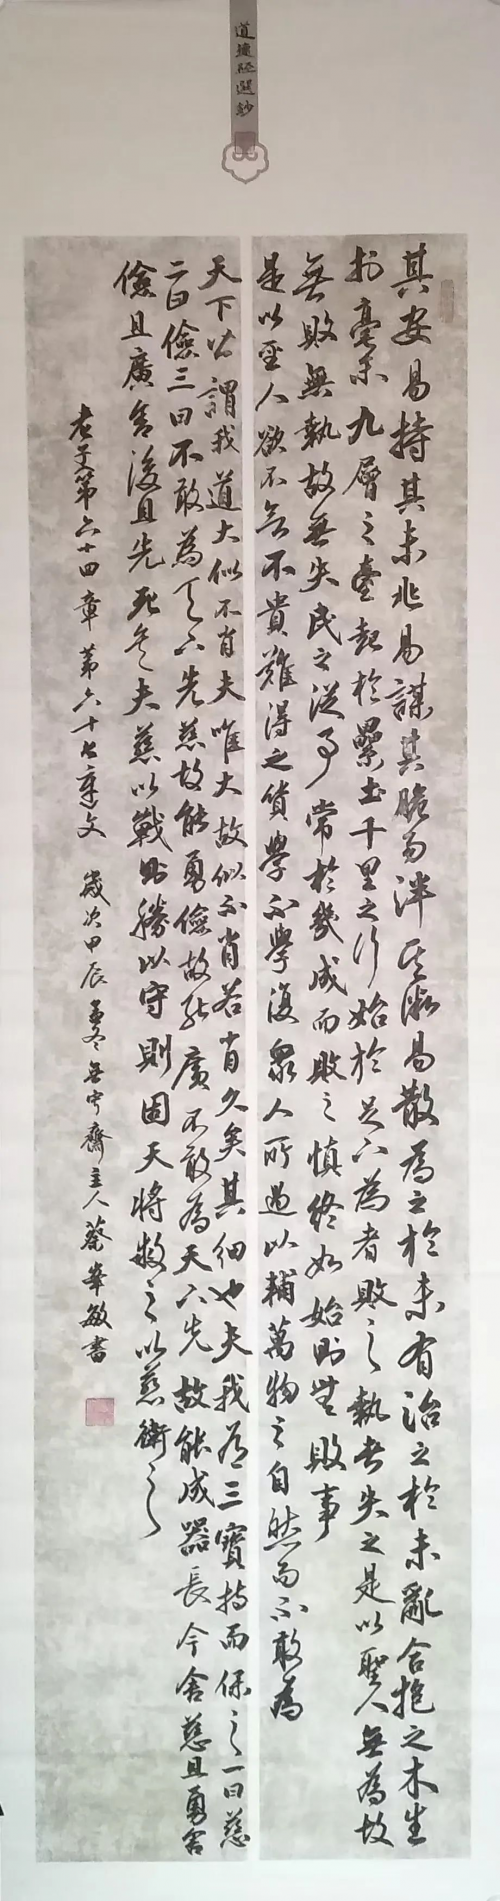 道德經選鈔
其安易持其未兆易謀其脆易泮其微易散為之於未有治之於未亂合抱之木生
於毫末九層之臺起於壘土千里之行始於足下為者敗之執者失之是以聖人無為故
無敗無執故無失民之從事常於幾成而敗之慎終如始則無敗事
是以聖人欲不欲不貴難得之貨學不學復眾人所過以輔萬物之自然而不敢為
天下皆謂我道大似不肖夫唯大故似不肖若肖久矣其細也夫我有三寶持而保之一曰慈
二曰儉三曰不敢為天下先慈故能勇儉故能廣不敢為天下先故能成器長今舍慈且勇舍
儉且廣舍後且先死矣夫慈以戰則勝以守則固天將救之以慈衛之
老子第六十四章 第六十七章文 歲次甲辰孟冬無齋主人蔡敏書